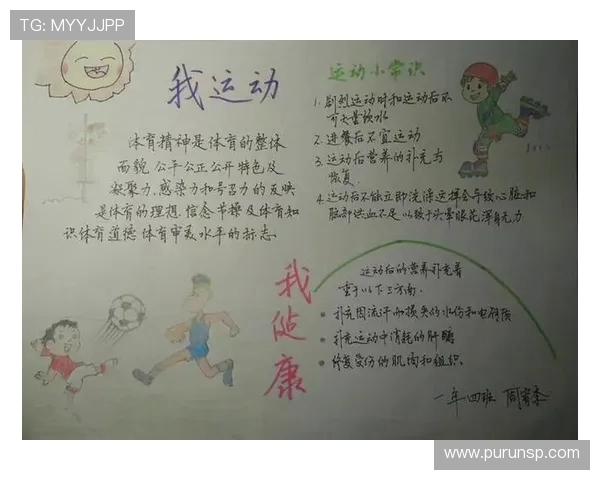 TG: MYYJJPP
我运动
体育精神是体育的整体
面貌.公平公正公开特色及
凝聚力.感染力和号召力的反映
是体育的理想.信念节操及体育知
识体育道德体育审美水平的标志.
运动小常识
1.剧烈运动时和运动后不
可大量饮水
2.进餐后不宜运动
3.运动后营养的补充与
恢复.
4.运动后不能立即洗澡这样会导致心脏和
脑部供血不足以致于头晕眼花浑身无力
我健康
运动后的营养补充着
重于以下三方面.
补充因流汗而损失的水份和电解质
补充运动中消耗的肝醣
修复受伤的肌肉和组织.
一年四班
www.purunsp.com